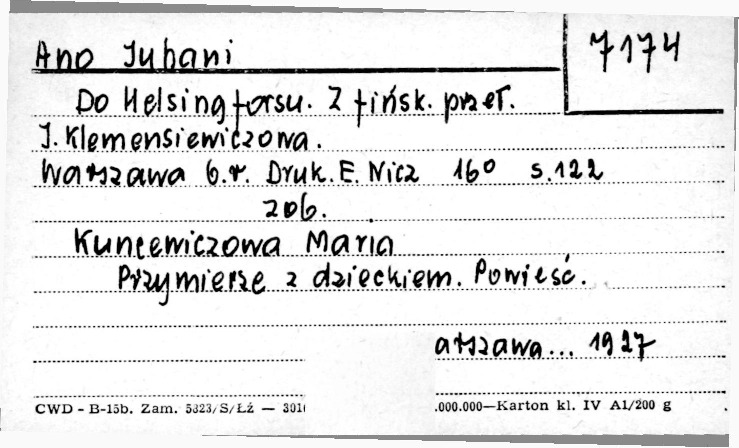 Ano Juhani
7174
Do Helsingforsu. Z fińsk. przeł.
J. Klemensiewiczowa.
Warszawa b.r. Druk. E. Nicz 16° s.122
zob.
Kuncewiczowa Maria
Przymierze z dzieckiem. Powieść.
arszawa... 1927
CWD - B-15b. Zam. 5323/S/Łź — 301
.000.000—Karton kl. IV A1/200 g